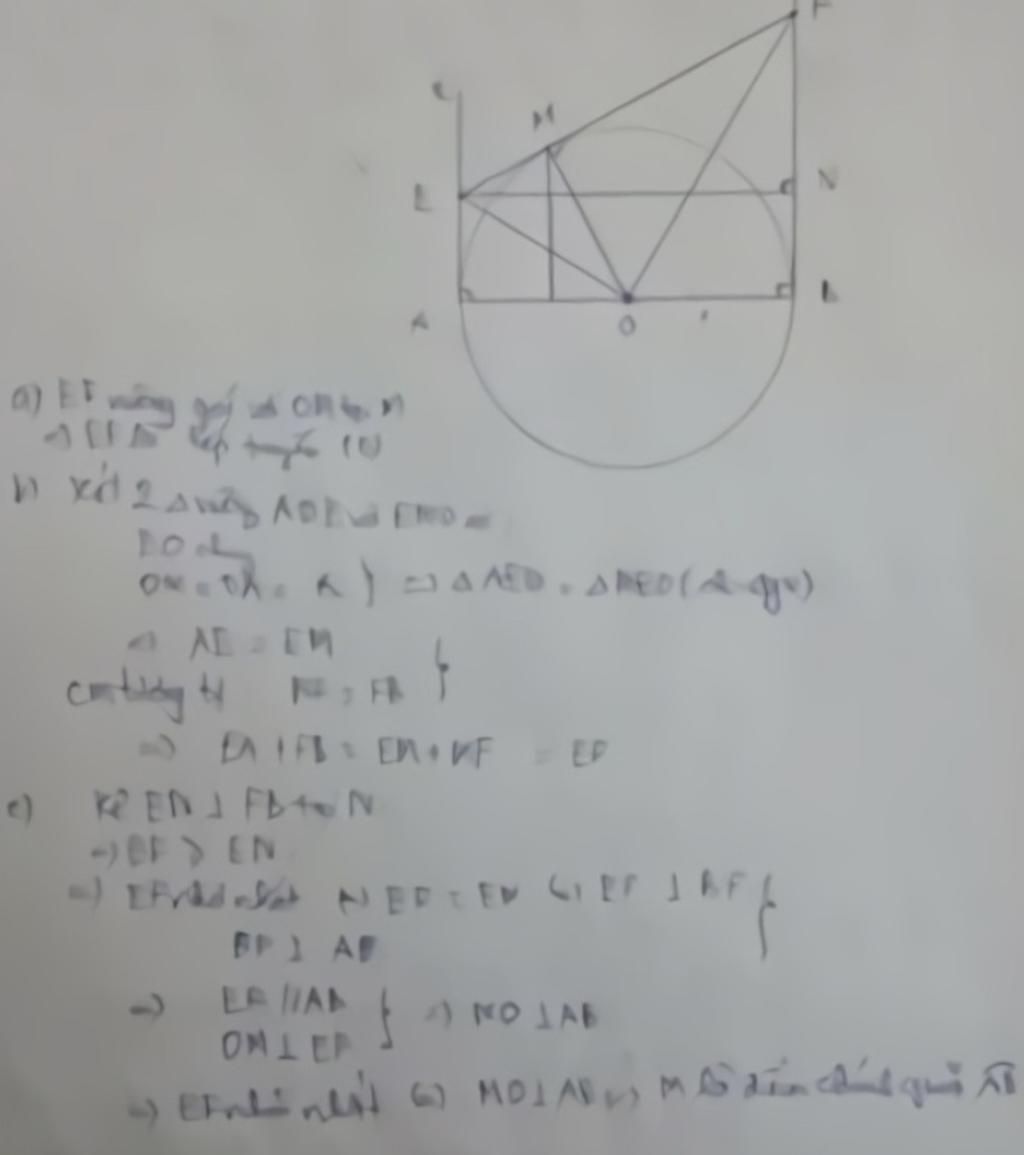 F
M
E
N
A
O
a) EF vuông góc OM M
=> EF tiếp tuyến (O)
b) Xét 2 Δ vuông AOE EMO
EO
OM = OA = R } => Δ AEO = Δ MEO
=> AE = EM
cm tương tự MF = FB }
=> EA + FB = EM + MF = EF
c) Kẻ EN ⊥ FB tại N
=> EF > EN
=> EF nhỏ nhất EF = EN <=> EF ⊥ BF }
BF ⊥ AB
=> EF // AB } => MO ⊥ AB
OM ⊥ EF
=> EF nhỏ nhất <=> MO ⊥ AB M là điểm chính giữa AB